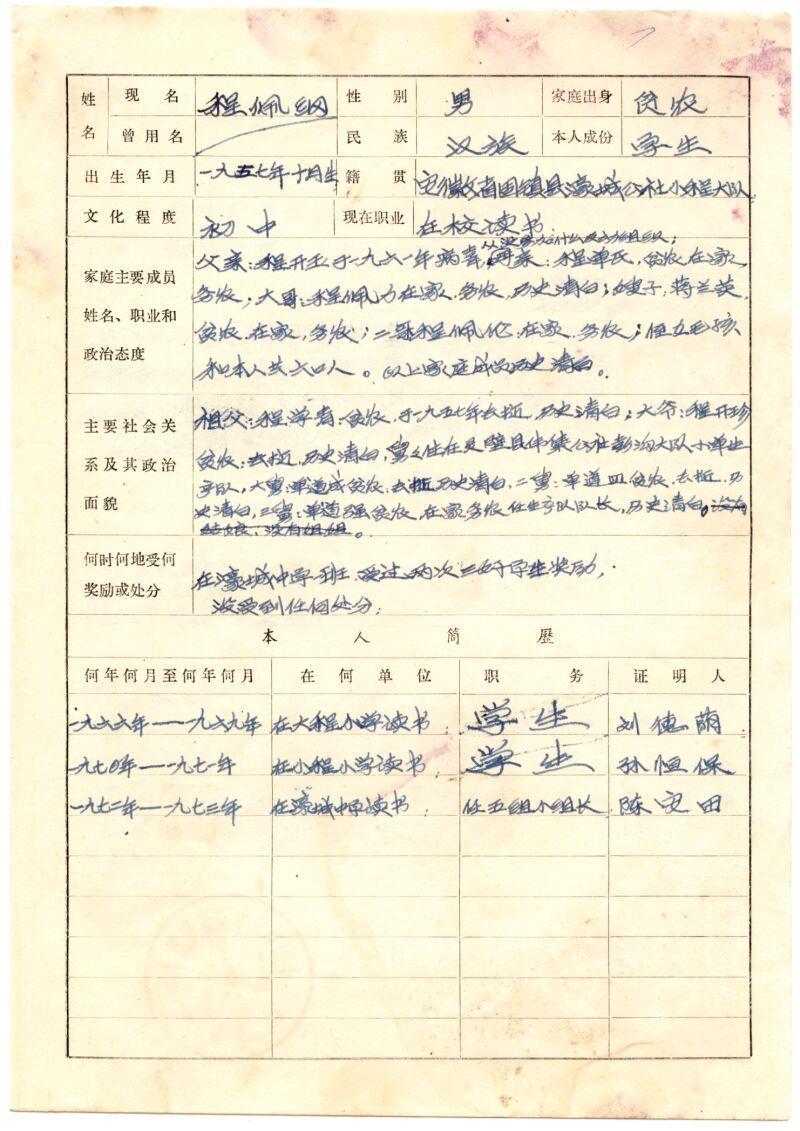 姓名 现名 程佩纲 性别 男 家庭出身 贫农
曾用名 民族 汉族 本人成份 学生
出生年月 一九五七年十月生 籍贯 安徽省固镇县濠城公社小程大队
文化程度 初中 现在职业 在校读书
从没参加什么反动组织;
家庭主要成员姓名、职业和政治态度
父亲:程开玉于一九六一年病害,母亲:程单氏,贫农在家
务农;大哥:程佩力在家务农,历史清白;嫂子,蒋兰英,
贫农在家,务农;二哥程佩伦在家,务农;侄女毛孩
和本人共六口人。以上家庭成员历史清白。
主要社会关系及其政治面貌
祖父:程学青:贫农,于一九五七年去逝,历史清白;大爷:程开珍
贫农:去逝,历史清白,舅舅住在灵壁县仲集公社彭沟大队小单生
产队,大舅:单道成贫农,去逝历史清白,二舅:单道田贫农,去逝,历
史清白,三舅:单道强贫农,在家务农任生产队队长,历史清白。没有
姑娘,没有姐姐。
何时何地受何奖励或处分
在濠城中学一班,受过两次三好学生奖励,
没受到任何处分;
本人简历
何年何月至何年何月 在何单位 职务 证明人
一九六六年——一九六九年 在大程小学读书; 学生 刘德荫
一九七〇年——一九七一年 在小程小学读书; 学生 孙恒保
一九七二年——一九七三年 在濠城中学读书; 任五组小组长 陈宝田